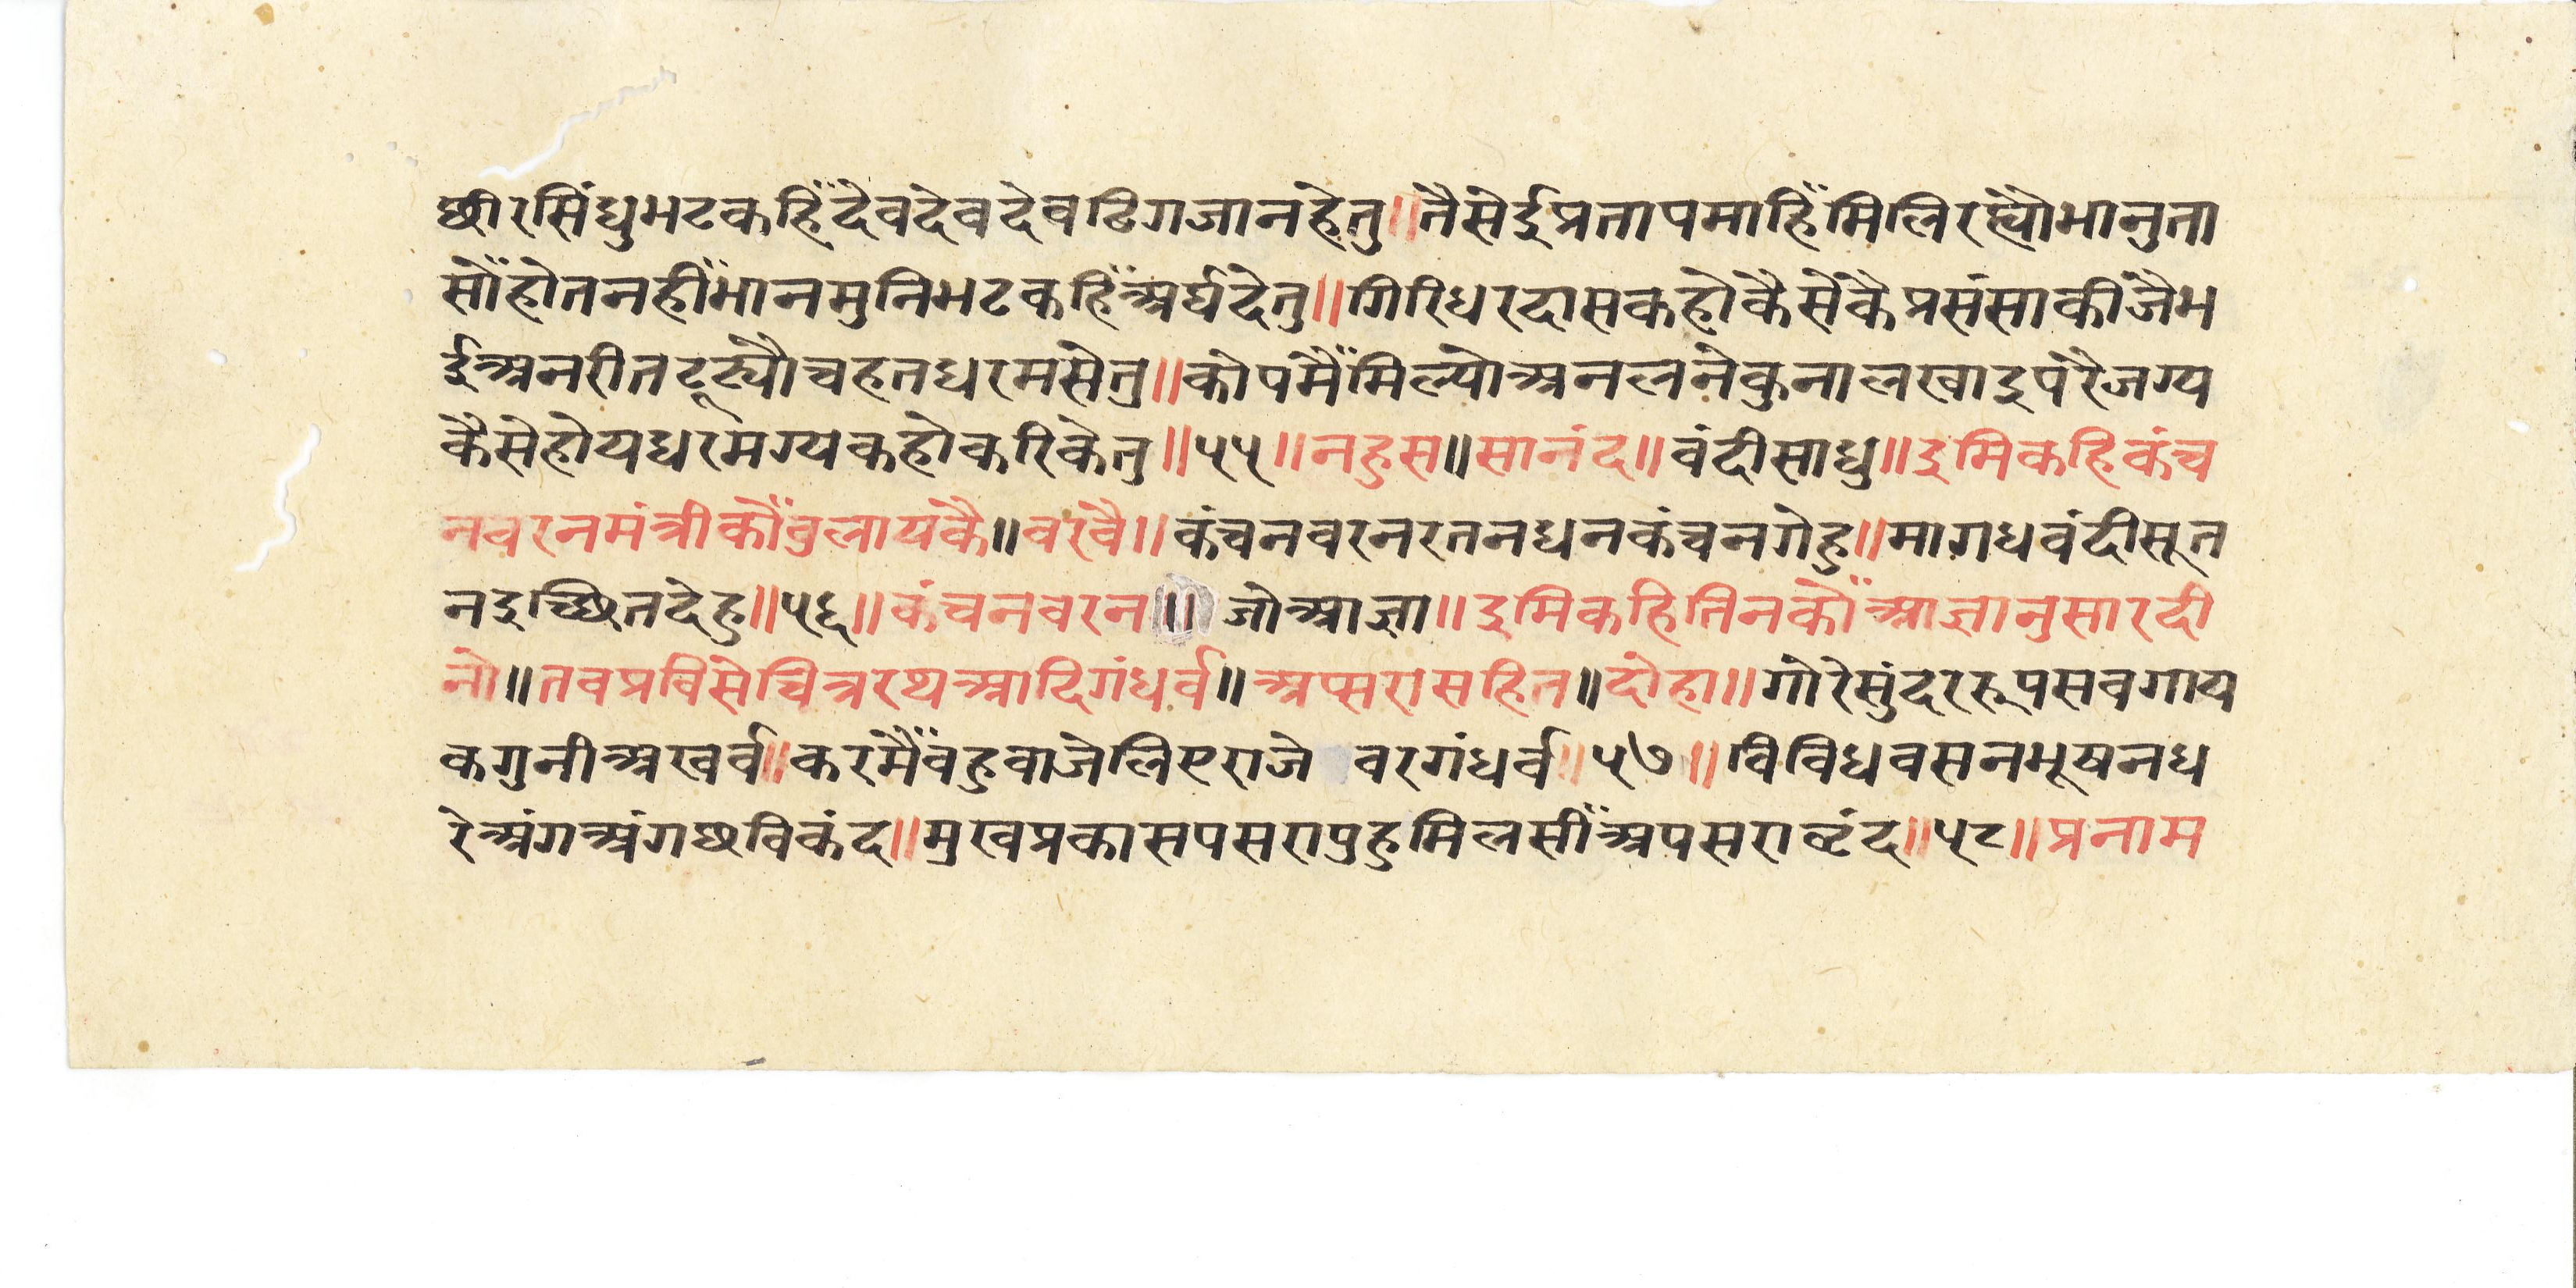 छीरसिंधुभटकहिँदेवदेवदेवढिगजानहेतु॥तैसेईप्रतापमाहिँमिलिरह्यौभानुता
सोँहोतनहीँमानमुनिभटकहिँअर्घदेतु॥गिरिधरदासकहोकैसेंकैप्रसंसाकीजैभ
ईअनरीतटूट्यौचहतधरमसेतु॥कोपमैँमिल्योअनलनेकुनालखाइपरैजग्य
कैसेहोयधरमग्यकहोकरिकेतु॥५५॥नहुस॥सानंद॥वंदीसाधु॥इमिकहिकंच
नवरनमंत्रीकौँवुलायकै॥वरवै॥कंचनवरनरतनधनकंचनगेहु॥मागधवंदीसूत
नइच्छितदेहु॥५६॥कंचनवरन॥जोआज्ञा॥इमिकहितिनकोँआज्ञानुसारदी
नो॥तवप्रविसेचित्ररथआदिगंधर्व॥अप्सरासहित॥दोहा॥गोरेसुंदररूपसवगाय
कगुनीअखर्व॥करमैँवहुवाजेलिएराजे वरगंधर्व॥५७॥विविधवसनभूषनध
रेअंगअंगछविकंद॥मुखप्रकासपसरापुहुमिलसीँअपसरावृंद॥५८॥प्रनाम